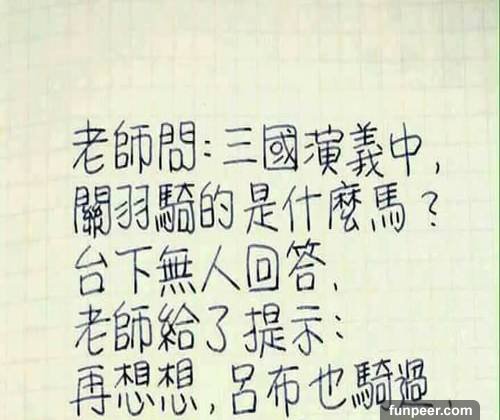 老師問:三國演義中,
關羽騎的是什麼馬?
台下無人回答,
老師給了提示:
再想想,呂布也騎過,
funpeer.com